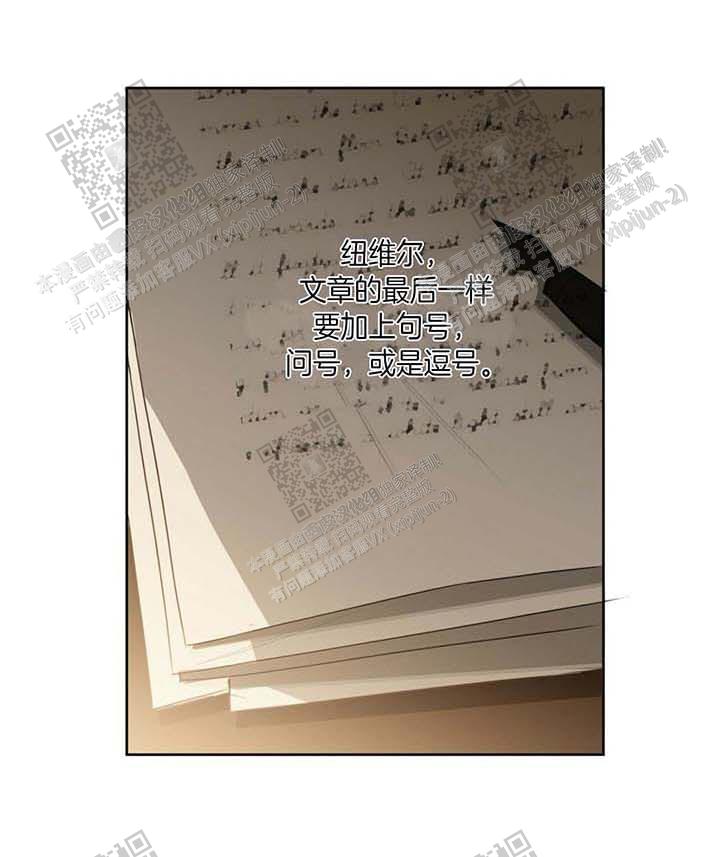 纽维尔，
文章的最后一样
要加上句号，
问号，或是逗号。
本漫画由国漫汉化组独家译制!
严禁商用 扫码观看完整版
有问题添加客服VX(xipijun-2)
本漫画由国漫汉化组独家译制!
严禁商用 扫码观看完整版
有问题添加客服VX(xipijun-2)
本漫画由国漫汉化组独家译制!
严禁商用 扫码观看完整版
有问题添加客服VX(xipijun-2)